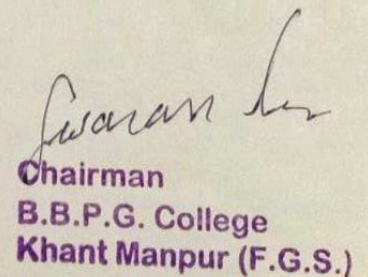 Chairman
B.B.P.G. College
Khant Manpur (F.G.S.)